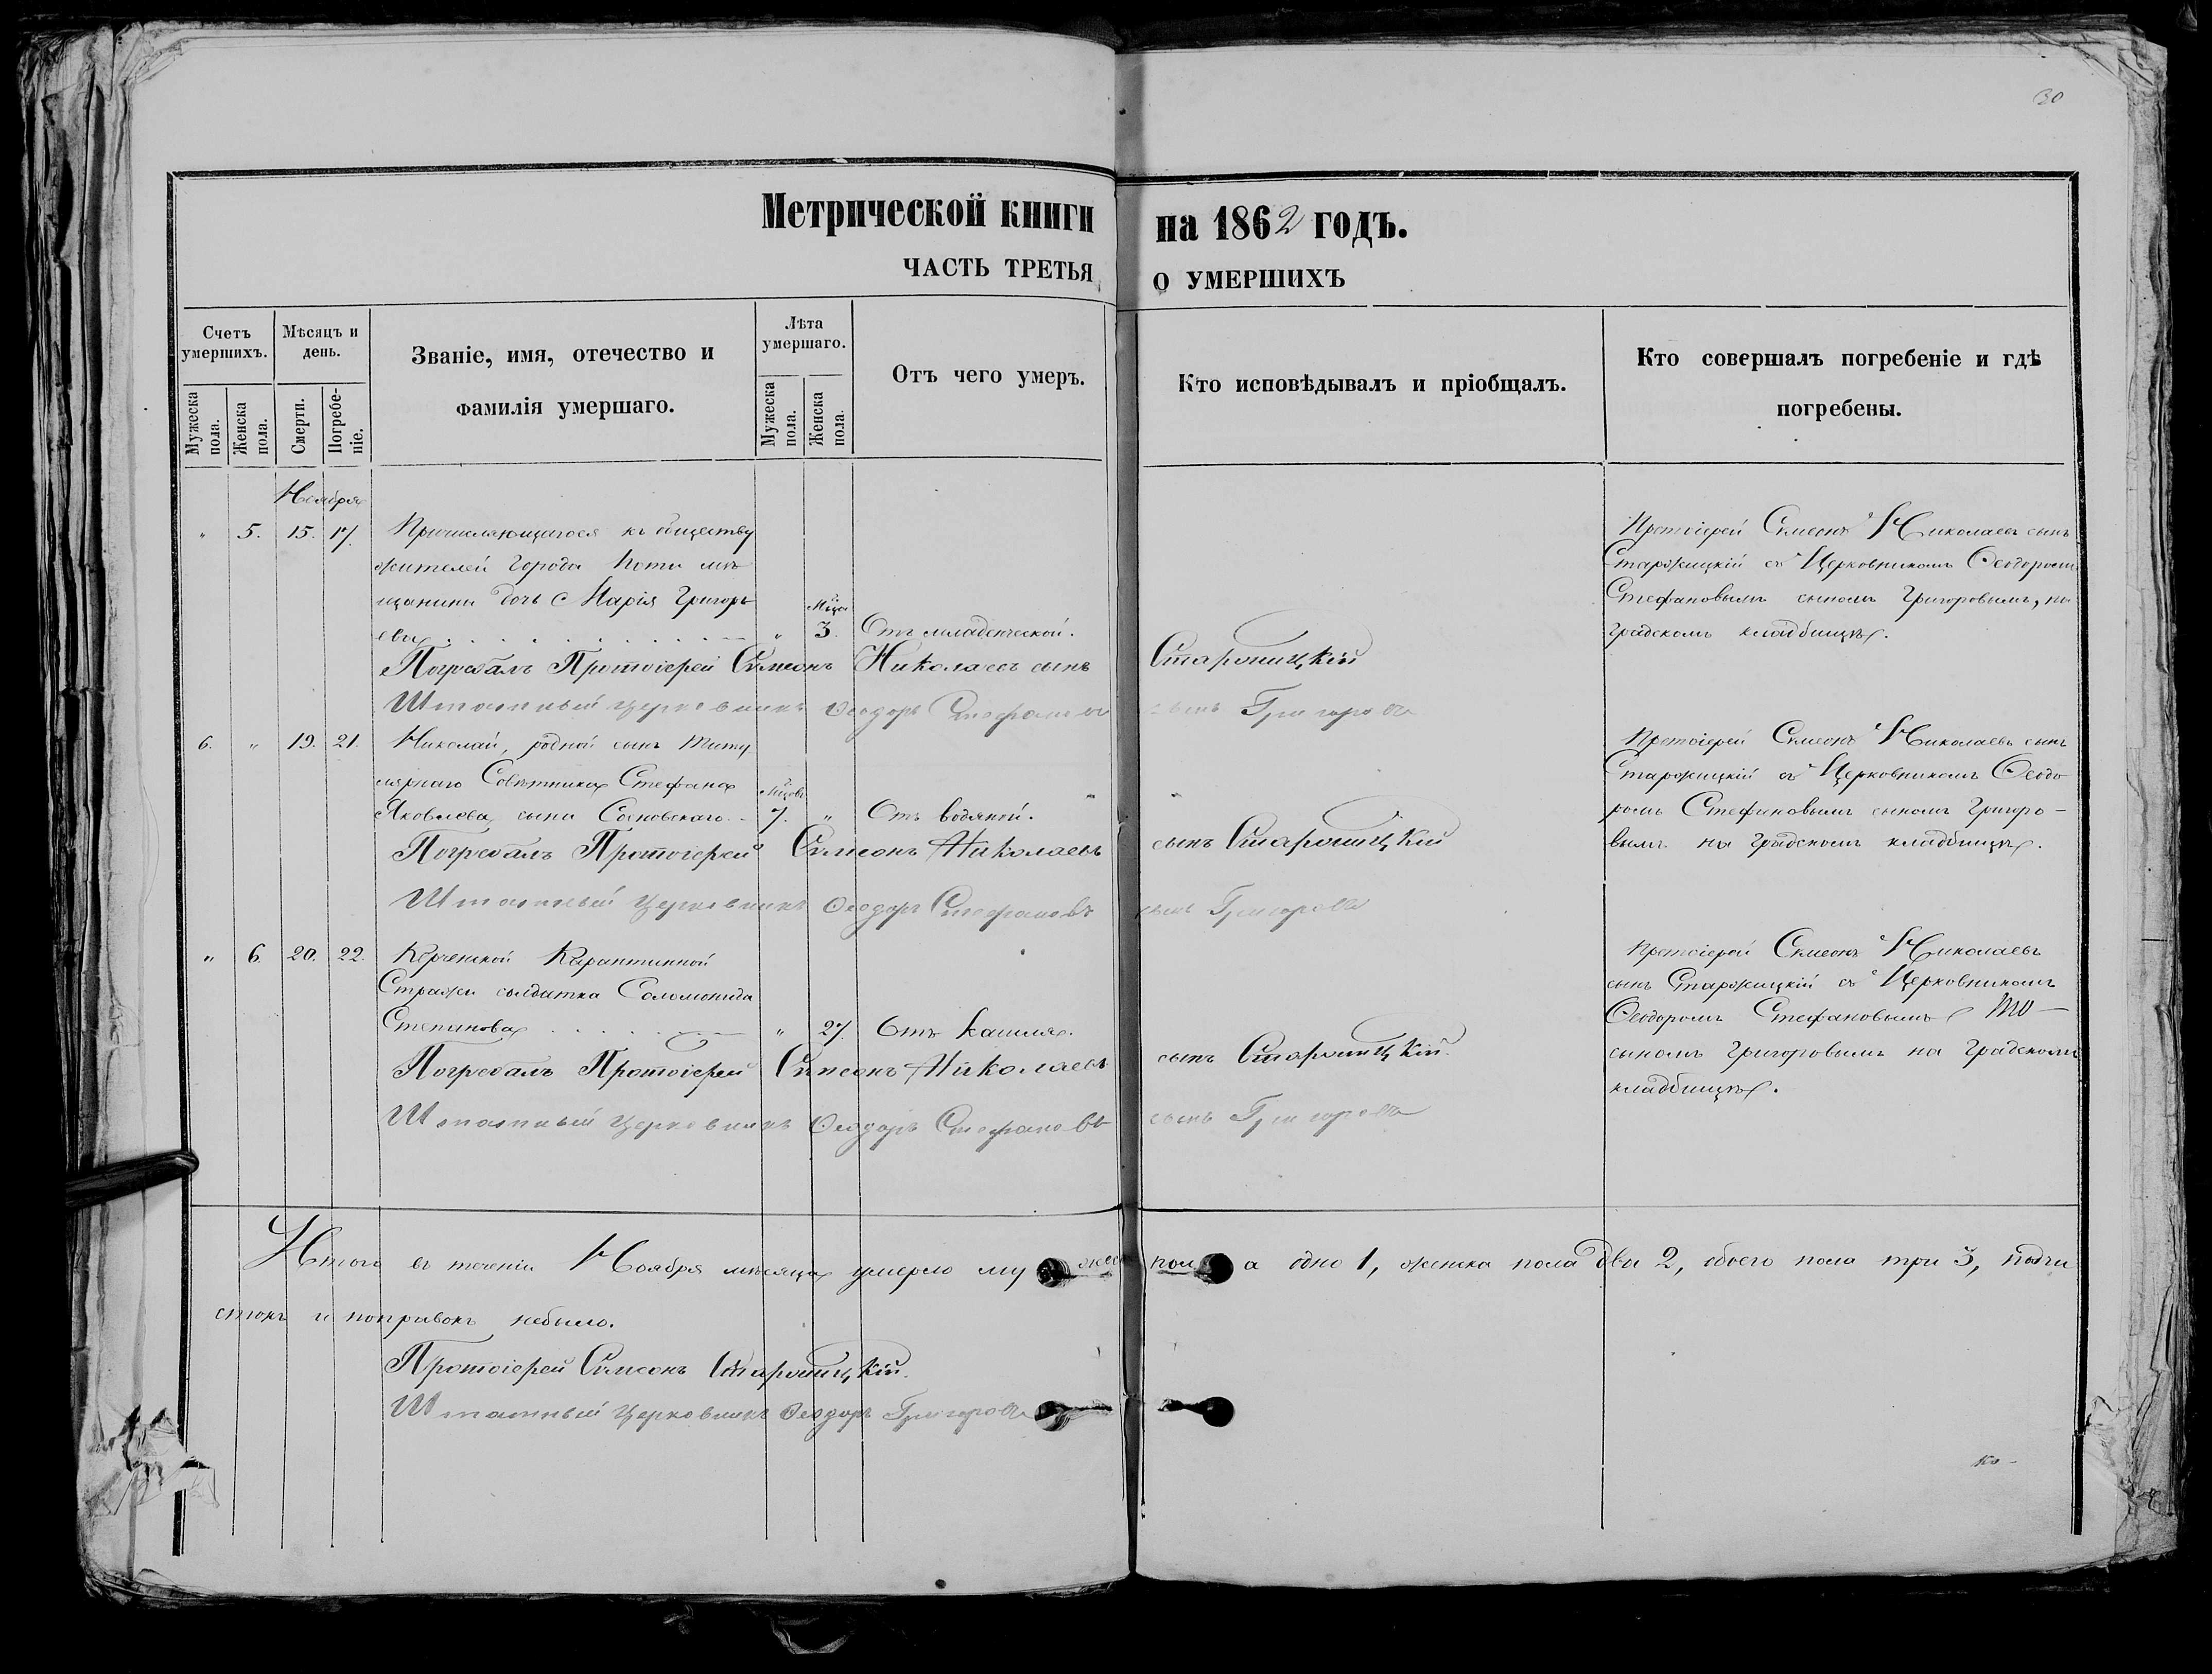 30
Метрической книги на 1862 годъ.
ЧАСТЬ ТРЕТЬЯ о УМЕРШИХЪ
Счетъ умершихъ.
Мѣсяцъ и день.
Званіе, имя, отечество и фамилія умершаго.
Лѣта умершаго.
Отъ чего умеръ.
Кто исповѣдывалъ и пріобщалъ.
Кто совершалъ погребеніе и гдѣ погребены.
Мужеска пола.
Женска пола.
Смерти.
Погребеніе.
Мужеска пола.
Женска пола.
Ноября
" 5. 15. 17. Причисляющагося къ обществу
жителей города Поти мѣ
щанина дочь Марія Григорь
ева " 3. Отъ младенческой.
Протоіерей Симеонъ Николаевъ сынъ
Старожицкій съ Церковникомъ Ѳеодоромъ
Стефановымъ сыномъ Григоровымъ, на
градскомъ кладбищѣ.
Погребалъ Протоіерей Симеонъ Николаевъ сынъ Старожицкій
Штатный церковникъ Ѳеодоръ Стефановъ сынъ Григоровъ
6. " 19. 21. Николай, родной сынъ Титу
лярнаго Совѣтника Стефана
Яковлева сына Сосновскаго 7. " Отъ водяной.
Протоіерей Симеонъ Николаевъ сынъ
Старожицкій съ Церковникомъ Ѳеодо
ромъ Стефановымъ сыномъ Григоро-
вымъ на градскомъ кладбищѣ.
Погребалъ Протоіерей Симеонъ Николаевъ сынъ Старожицкій
Штатный церковникъ Ѳеодоръ Стефановъ сынъ Григоровъ
" 6. 20. 22. Керченской Карантинной
Стражи солдатка Соломонида
Степанова " 27. Отъ кашля.
Протоіерей Симеонъ Николаевъ
сынъ Старожицкій съ Церковникомъ
Ѳеодоромъ Стефановымъ
сыномъ Григоровымъ на градскомъ
кладбищѣ.
Погребалъ Протоіерей Симеонъ Николаевъ сынъ Старожицкій.
Штатный церковникъ Ѳеодоръ Стефановъ сынъ Григоровъ
Итого въ теченіи Ноября мѣсяца умерло мужеска пола одно 1, женска пола два 2, обоего пола три 3, подчи
стокъ и поправокъ небыло.
Протоіерей Симеонъ Старожицкій.
Штатный Церковникъ Ѳеодоръ Григоровъ